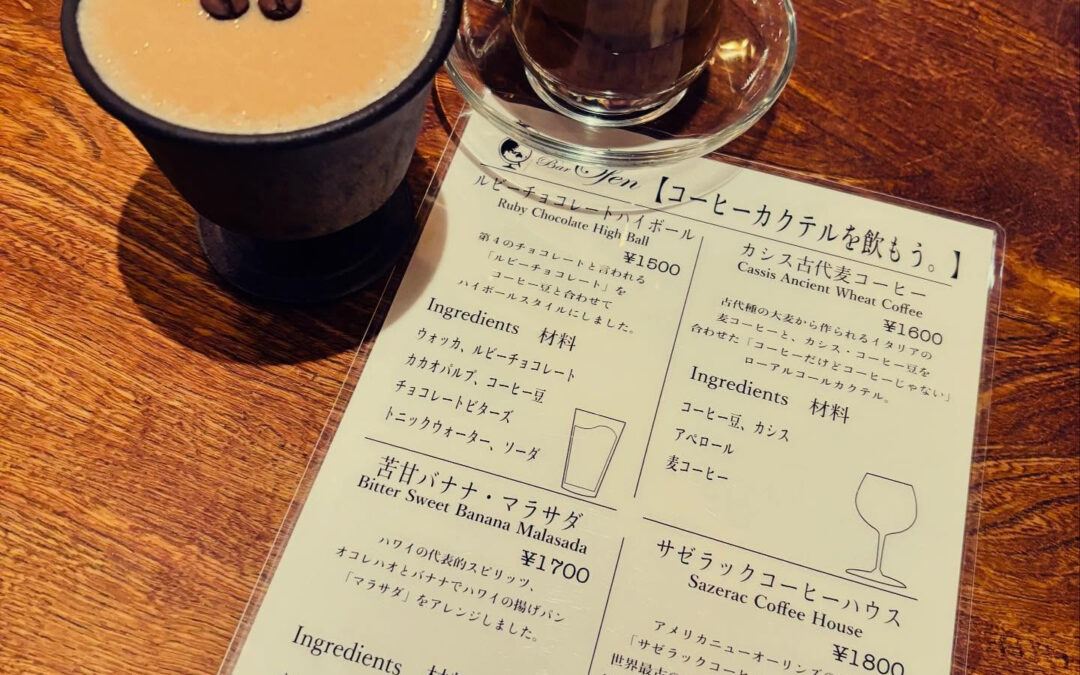 Bar Fen
【コーヒーカクテルを飲もう。】
ルビーチョコレートハイボール
Ruby Chocolate High Ball
¥1500
第4のチョコレートと言われる
「ルビーチョコレート」を
コーヒー豆と合わせて
ハイボールスタイルにしました。
Ingredients 材料
ウォッカ、ルビーチョコレート
カカオパルプ、コーヒー豆
チョコレートビターズ
トニックウォーター、ソーダ
カシス古代麦コーヒー
Cassis Ancient Wheat Coffee
¥1600
古代種の大麦から作られるイタリアの
麦コーヒーと、カシス・コーヒー豆を
合わせた「コーヒーだけどコーヒーじゃない」
ローアルコールカクテル。
Ingredients 材料
コーヒー豆、カシス
アペロール
麦コーヒー
苦甘バナナ・マラサダ
Bitter Sweet Banana Malasada
¥1700
ハワイの代表的スピリッツ、
オコレハオとバナナでハワイの揚げパン
「マラサダ」をアレンジしました。
Ingredients
サゼラックコーヒーハウス
Sazerac Coffee House
¥1800
アメリカニューオーリンズの
「サゼラックコーヒ
世界最古の